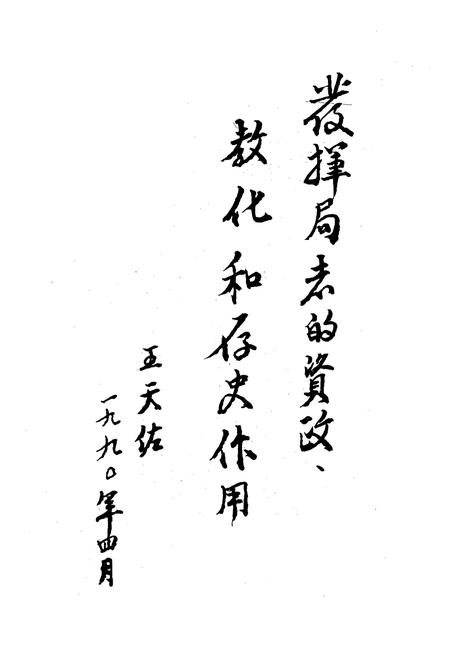 發揮局志的資政、
教化和存史作用
王天佑
一九九〇年四月